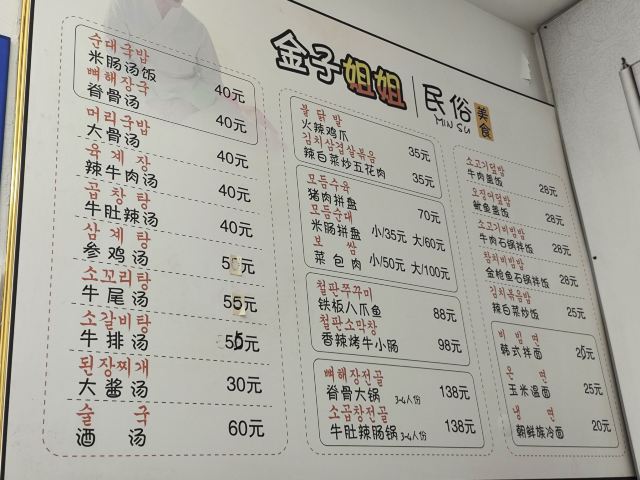 金子姐姐
民俗
MIN SU
美食
순대국밥
米肠汤饭 40元
뼈해장국
脊骨汤 40元
머리국밥
大骨汤 40元
육계장
辣牛肉汤 40元
곱창탕
牛肚辣汤 40元
삼계탕
参鸡汤 55元
소꼬리탕
牛尾汤 55元
소갈비탕
牛排汤
된장찌개
大酱汤 30元
술국
酒汤 60元
불닭발
火辣鸡爪 35元
김치삼겹살볶음
辣白菜炒五花肉 35元
모듬수육
猪肉拼盘 70元
모듬순대
米肠拼盘 小/35元 大/60元
보쌈
菜包肉 小/50元 大/100元
철판쭈꾸미
铁板八爪鱼 88元
철판소막창
香辣烤牛小肠 98元
뼈해장전골
脊骨大锅 3-4人份 138元
소곱창전골
牛肚辣肠锅 3-4人份 138元
소고기덮밥
牛肉盖饭 28元
오징어덮밥
鱿鱼盖饭 28元
소고기비빔밥
牛肉石锅拌饭 28元
참치비빔밥
金枪鱼石锅拌饭 28元
김치볶음밥
辣白菜炒饭 25元
비빔면
韩式拌面
온면
玉米温面 25元
냉면
朝鲜族冷面 20元